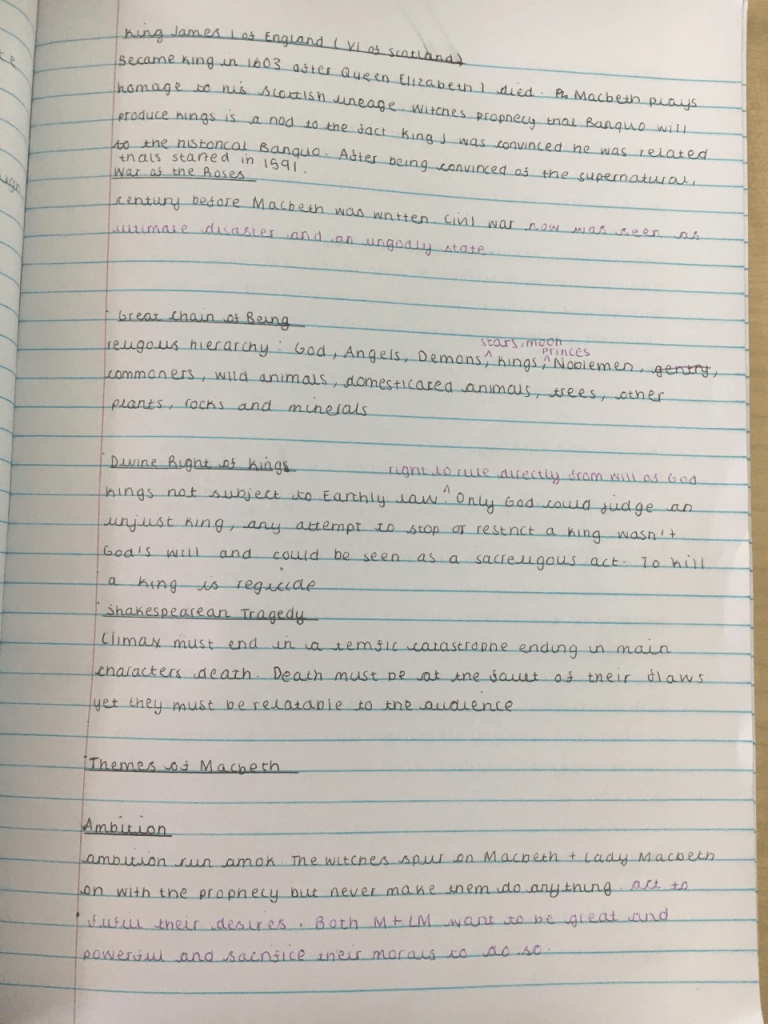 King James I of England (VI of Scotland)
Became King in 1603 after Queen Elizabeth I died. Macbeth plays
homage to his Scottish lineage. Witches prophecy that Banquo will
produce kings is a nod to the fact King J was convinced he was related
to the historical Banquo. After being convinced of the supernatural,
trials started in 1591.
War of the Roses
century before Macbeth was written. Civil war now was seen as
ultimate disaster and an ungodly state.
Great Chain of Being
stars, moon
princes
religous hierarchy : God, Angels, Demons, ^ Kings, ^ Noblemen, gentry,
commoners, wild animals, domesticated animals, trees, other
plants, rocks and minerals
Divine Right of Kings
right to rule directly from will of God
Kings not subject to Earthly law ^. Only God could judge an
unjust King, any attempt to stop or restrict a king wasn't
God's will and could be seen as a sacreligous act. To kill
a king is regicide
Shakespearean Tragedy
Climax must end in a terrific catastrophe ending in main
characters death. Death must be at the fault of their flaws
yet they must be relatable to the audience
Themes of Macbeth
Ambition
ambition run amok. The witches spur on Macbeth + Lady Macbeth
on with the prophecy but never make them do anything. act to
fulfil their desires. Both M+LM want to be great and
powerful and sacrifice their morals to do so.